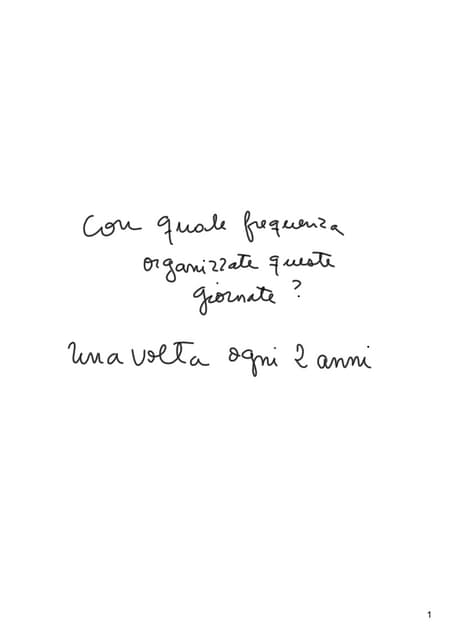 Con quale frequenza
organizzate queste
giornate?
Una volta ogni 2 anni
1